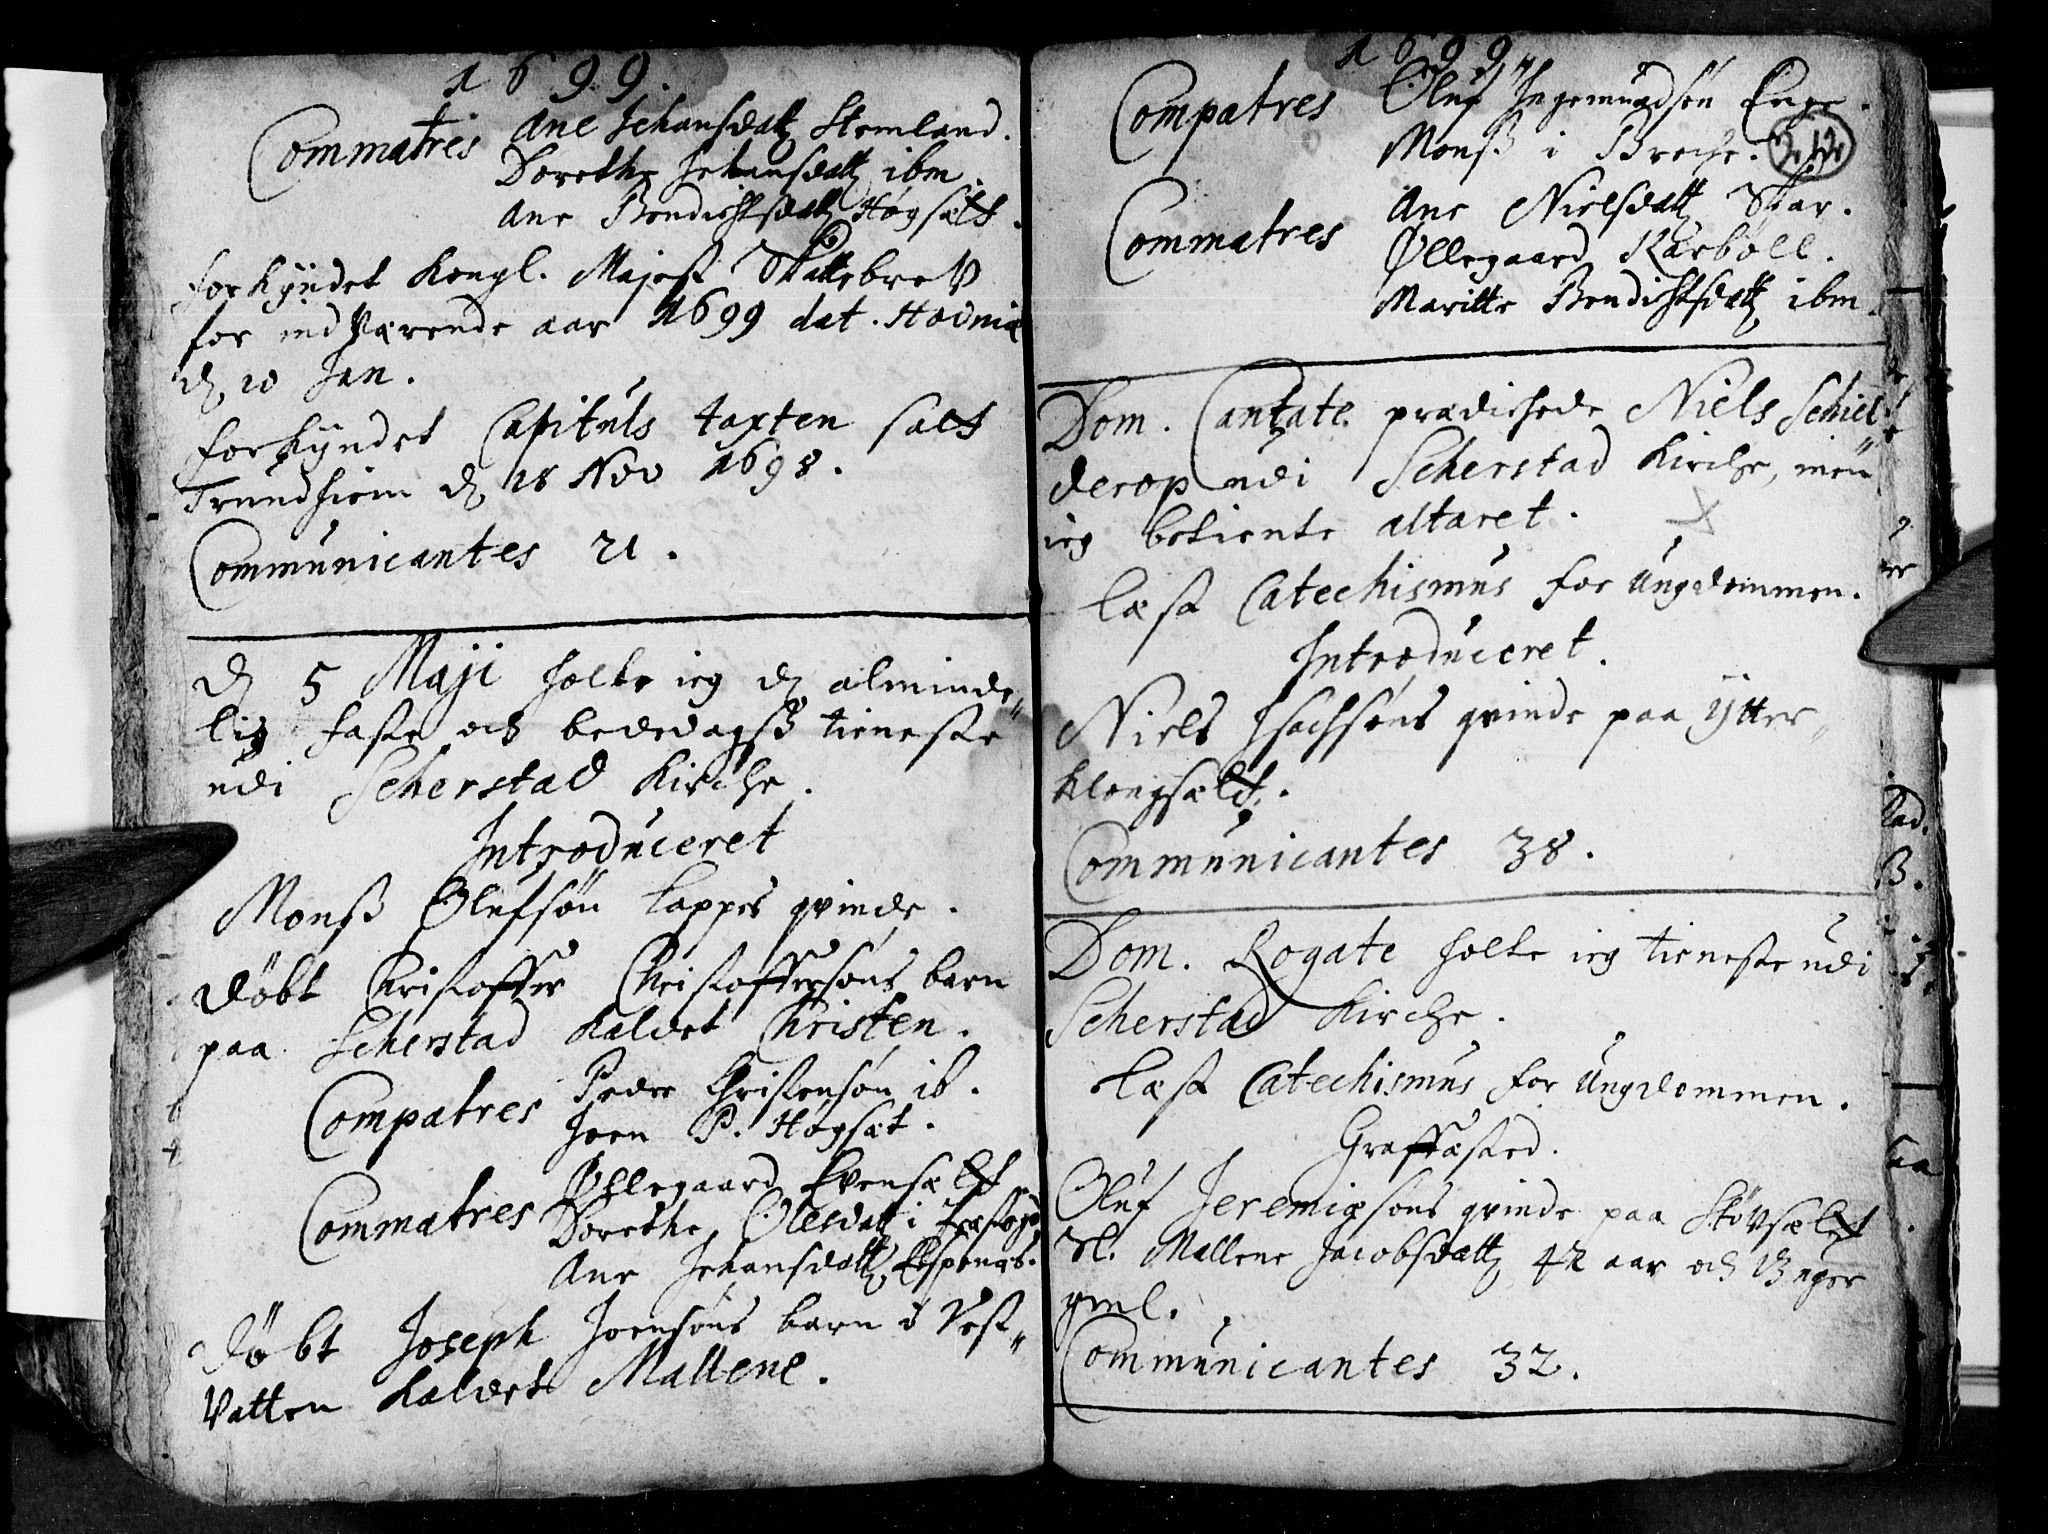 1699.
Commatres Ane Jehansdatt Stemland.
Dorethe Jehansdatt ibm.
Ane Bendichtsdatt Høgsælt.
forkÿndet Kongl. Majest Skattebreff
for indværende aar 1699 dat. Hafniæ
d 10 Jan.
forkÿndet Capituls taxten satt
Trundhiem d 18 Nov 1698.
Communicantes 21.
d 5 Maji holte ieg d alminde„
lig faste och bededagsß tieneste
udi Scherstad Kirche.
Introduceret
Monß Olufsøn Lappes qvinde.
døbt Christoffer Christoffersøns barn
paa Scherstad kaldet Christen.
Compatres Peder Christensøn ib.
Joen P. Høgsæt.
Commatres Øllegaard Evensæt
Dorethe Olesdatt i Præstegd
Ane Jehansdatt Espenæs.
døbt Joseph Joensøns barn i Vest„
Vatten kaldet Mallene.
1699.
Compatres Oluf Ingemundsøn Enge.
Monß i Breche.
Commatres Ane Nielsdatt Skar.
Øllegaard Karbøll.
Maritte Bendichtsdatt ibm.
Dom. Cantate prædichede Niels Schiel„
derop udi Scherstad Kirche, men
ieg betiente altaret.
Læst Catechismus for Ungdommen.
Introduceret.
Niels Isachsøns qvinde paa ÿtter„
Klongsælt.
Communicantes 38.
Dom. Rogate holte ieg tieneste udi
Scherstad Kirche.
Læst Catechismus for Ungdommen.
Graffæsted.
Oluf Jeremiæsøns qvinde paa Støvsælet
Sl. Mallene Jacobsdatt 42 aar och 13 uger
gml.
Communicantes 32.